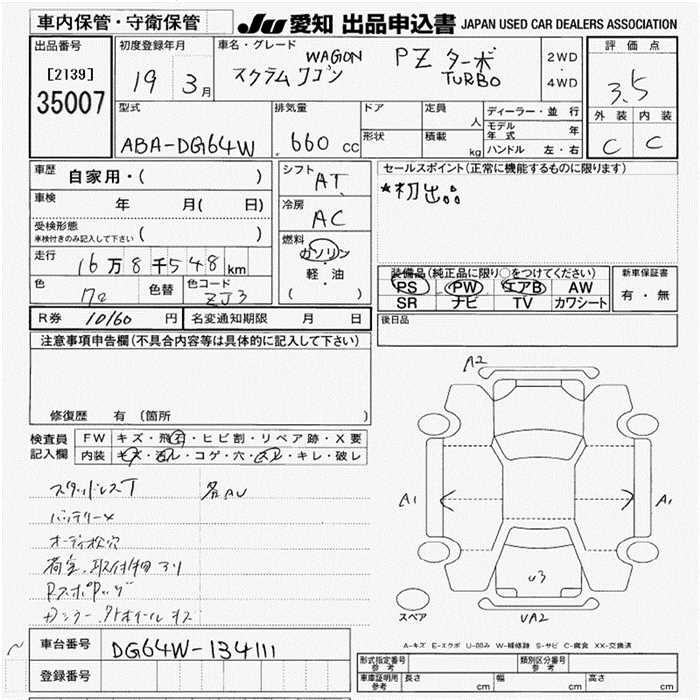 車内保管・守衛保管
JU 愛知 出品申込書 JAPAN USED CAR DEALERS ASSOCIATION
出品番号
[2139]
35007
初度登録年月
19 3月
車名・グレード
WAGON
スクラムワゴン
PZ ターボ
TURBO
2WD
4WD
評価点
3.5
外装 内装
C C
型式
ABA-DG64W
排気量
660 cc
ドア
形状
定員
人
積載
kg
ディーラー・並行
モデル年式 年
ハンドル 左・右
車歴
自家用・( )
車検
年 月( 日)
受検形態
車検付きのみ記入して下さい ( )
走行
16万8千548km
色
色替
色コード
ZJ3
シフト
AT
冷房
AC
燃料
ガソリン
・
軽・油
( )
セールスポイント(正常に機能するものに限ります)
*初出品
装備品(純正品に限り○をつけてください)
PS PW エアB AW
SR ナビ TV カワシート
新車保証書
有・無
後日品
R券 10160 円
名変通知期限 月 日
注意事項申告欄(不具合内容等は具体的に記入して下さい)
修復歴 有(箇所 )
検査員
記入欄
FW キズ・飛石・ヒビ割・リペア跡・X要
内装 キズ・汚れ・コゲ・穴・スレ・キレ・破レ
スタッドレスT
各AU
バッテリー×
オーディオ穴
荷室、取付物アリ
A2
A1
A1
U3
UA2
スペア
A-キズ E-エクボ U-凹み W-補修跡 S-サビ C-腐食 XX-交換済
車台番号
DG64W-134111
登録番号
形式指定番号
参考
類別区分番号
参考
車庫証明用
参考
長さ cm
幅 cm
高さ cm